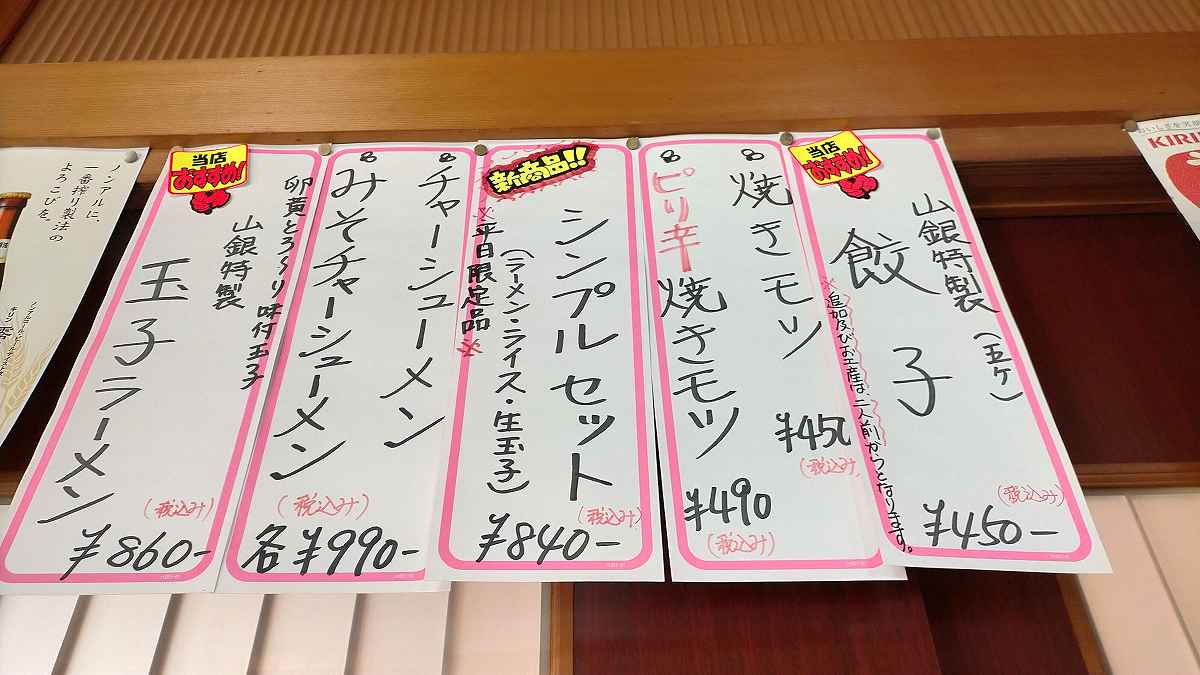 おいしさを実現
KIRI
当店
おすすめ!
山銀特製
(五ケ)
餃子
※追加及びお土産は、二人前からとなります。
(税込み)
¥450-
焼きモツ
¥450
(税込み
ピリ辛焼きモツ
¥490
(税込み)
新商品!!
シンプルセット
(ラーメン・ライス・生玉子)
※平日限定品※
(税込み)
¥840-
チャーシューメン
みそチャーシューメン
(税込み)
各¥990-
当店
おすすめ!
卵黄とろ〜り味付玉子
山銀特製
玉子ラーメン
(税込み)
¥860-
ノンアルに、
一番搾り製法の
よろこびを。